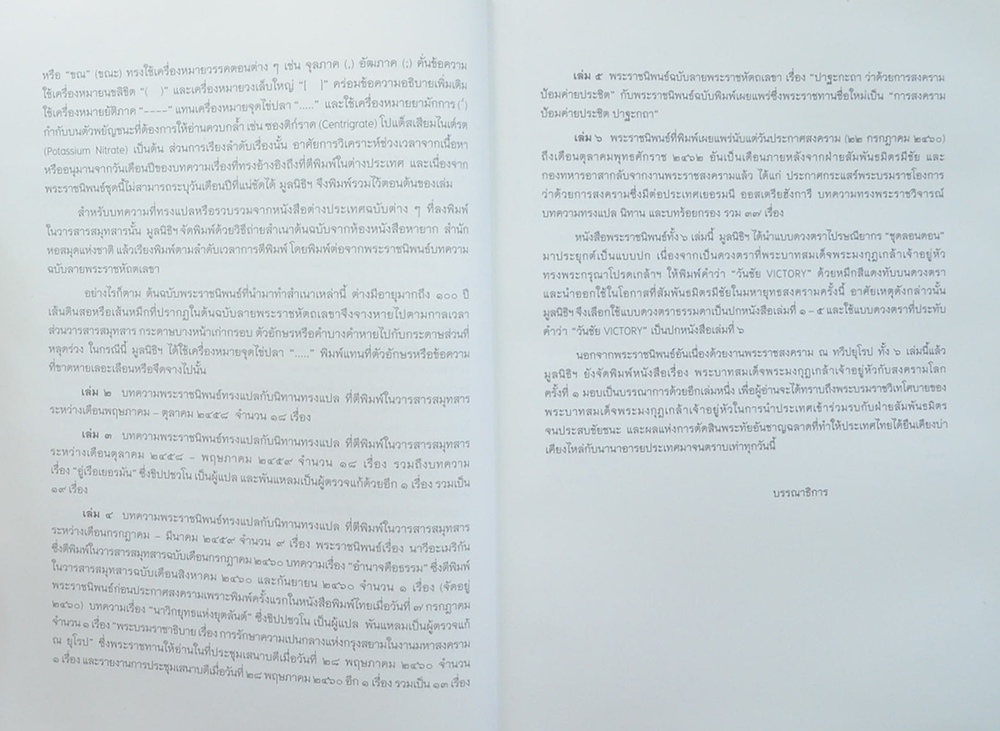 หรือ “ขณ” (ขณะ) ทรงใช้เครื่องหมายวรรคตอนต่าง ๆ เช่น จุลภาค (,) อัฒภาค (;) คั่นข้อความ
ใช้เครื่องหมายนขลิขิต “(   )” และเครื่องหมายวงเล็บใหญ่ “[   ]” คร่อมข้อความอธิบายเพิ่มเติม
ใช้เครื่องหมายยัติภาค “----” แทนเครื่องหมายจุดไข่ปลา “.....” และใช้เครื่องหมายยามักการ (๎)
กำกับบนตัวพยัญชนะที่ต้องการให้อ่านควบกล้ำ เช่น ซองติก๎ราด (Centrigrate) โปแต็สเสียมไนเต๎รด
(Potassium Nitrate) เป็นต้น ส่วนการเรียงลำดับเรื่องนั้น อาศัยการวิเคราะห์ช่วงเวลาจากเนื้อหา
หรืออนุมานจากวันเดือนปีของบทความเรื่องที่ทรงอ้างอิงถึงที่ตีพิมพ์ในต่างประเทศ และเนื่องจาก
พระราชนิพนธ์ชุดนี้ไม่สามารถระบุวันเดือนปีที่แน่ชัดได้ มูลนิธิฯ จึงพิมพ์รวมไว้ตอนต้นของเล่ม
สำหรับบทความที่ทรงแปลหรือรวบรวมจากหนังสือต่างประเทศฉบับต่าง ๆ ที่ลงพิมพ์
ในวารสารสมุทสารนั้น มูลนิธิฯ จัดพิมพ์ด้วยวิธีถ่ายสำเนาต้นฉบับจากห้องหนังสือหายาก สำนัก
หอสมุดแห่งชาติ แล้วเรียงพิมพ์ตามลำดับเวลาการตีพิมพ์ โดยพิมพ์ต่อจากพระราชนิพนธ์บทความ
ฉบับลายพระราชหัตถเลขา
อย่างไรก็ตาม ต้นฉบับพระราชนิพนธ์ที่นำมาทำสำเนาเหล่านี้ ต่างมีอายุมากถึง ๑๐๐ ปี
เส้นดินสอหรือเส้นหมึกที่ปรากฏในต้นฉบับลายพระราชหัตถเลขาจึงจางหายไปตามกาลเวลา
ส่วนวารสารสมุทสาร กระดาษบางหน้าเก่ากรอบ ตัวอักษรหรือคำบางคำหายไปกับกระดาษส่วนที่
หลุดร่วง ในกรณีนี้ มูลนิธิฯ ได้ใช้เครื่องหมายจุดไข่ปลา “.....” พิมพ์แทนที่ตัวอักษรหรือข้อความ
ที่ขาดหายเลอะเลือนหรือจืดจางไปนั้น
เล่ม ๒ บทความพระราชนิพนธ์ทรงแปลกับนิทานทรงแปล ที่ตีพิมพ์ในวารสารสมุทสาร
ระหว่างเดือนพฤษภาคม – ตุลาคม ๒๔๕๘ จำนวน ๑๘ เรื่อง
เล่ม ๓ บทความพระราชนิพนธ์ทรงแปลกับนิทานทรงแปล ที่ตีพิมพ์ในวารสารสมุทสาร
ระหว่างเดือนตุลาคม ๒๔๕๘ – พฤษภาคม ๒๔๕๙ จำนวน ๑๘ เรื่อง รวมถึงบทความ
เรื่อง “อู่เรือเยอรมัน” ซึ่งชิปปชวโน เป็นผู้แปล และพันแหลมเป็นผู้ตรวจแก้ด้วยอีก ๑ เรื่อง รวมเป็น
๑๙ เรื่อง
เล่ม ๔ บทความพระราชนิพนธ์ทรงแปลกับนิทานทรงแปล ที่ตีพิมพ์ในวารสารสมุทสาร
ระหว่างเดือนกรกฎาคม – มีนาคม ๒๔๕๙ จำนวน ๙ เรื่อง พระราชนิพนธ์เรื่อง นาวีอะเมริกัน
ซึ่งตีพิมพ์ในวารสารสมุทสารฉบับเดือนกรกฎาคม ๒๔๖๐ บทความเรื่อง “อำนาจคือธรรม” ซึ่งตีพิมพ์
ในวารสารสมุทสารฉบับเดือนสิงหาคม ๒๔๖๐ และกันยายน ๒๔๖๐ จำนวน ๑ เรื่อง (จัดอยู่
พระราชนิพนธ์ก่อนประกาศสงครามเพราะพิมพ์ครั้งแรกในหนังสือพิมพ์ไทยเมื่อวันที่ ๗ กรกฎาคม
๒๔๖๐) บทความเรื่อง “นาวิกยุทธแห่งยุตลันด์” ซึ่งชิปปชวโน เป็นผู้แปล พันแหลมเป็นผู้ตรวจแก้
จำนวน ๑ เรื่อง “พระบรมราชาธิบาย เรื่อง การรักษาความเปนกลางแห่งกรุงสยามในงานมหาสงคราม
ณ ยุโรป” ซึ่งพระราชทานให้อ่านในที่ประชุมเสนาบดีเมื่อวันที่ ๒๘ พฤษภาคม ๒๔๖๐ จำนวน
๑ เรื่อง และรายงานการประชุมเสนาบดีเมื่อวันที่ ๒๘ พฤษภาคม ๒๔๖๐ อีก ๑ เรื่อง รวมเป็น ๑๓ เรื่อง
เล่ม ๕ พระราชนิพนธ์ฉบับลายพระราชหัตถเลขา เรื่อง “ปาฐะกะถา ว่าด้วยการสงคราม
ป้อมค่ายประชิต” กับพระราชนิพนธ์ฉบับพิมพ์เผยแพร่ซึ่งพระราชทานชื่อใหม่เป็น “การสงคราม
ป้อมค่ายประชิต ปาฐะกถา”
เล่ม ๖ พระราชนิพนธ์ที่พิมพ์เผยแพร่นับแต่วันประกาศสงคราม (๒๒ กรกฎาคม ๒๔๖๐)
ถึงเดือนตุลาคมพุทธศักราช ๒๔๖๒ อันเป็นเดือนภายหลังจากฝ่ายสัมพันธมิตรมีชัย และ
กองทหารอาสากลับจากงานพระราชสงครามแล้ว ได้แก่ ประกาศกระแสร์พระบรมราชโองการ
ว่าด้วยการสงครามซึ่งมีต่อประเทศเยอรมนี ออสเตรียฮังการี บทความทรงพระราชวิจารณ์
บทความทรงแปล นิทาน และบทร้อยกรอง รวม ๓๗ เรื่อง
หนังสือพระราชนิพนธ์ทั้ง ๖ เล่มนี้ มูลนิธิฯ ได้นำแบบดวงตราไปรษณียากร “ชุดลอนดอน”
มาประยุกต์เป็นแบบปก เนื่องจากเป็นดวงตราที่พระบาทสมเด็จพระมงกุฎเกล้าเจ้าอยู่หัว
ทรงพระกรุณาโปรดเกล้าฯ ให้พิมพ์คำว่า “วันชัย VICTORY” ด้วยหมึกสีแดงทับบนดวงตรา
และนำออกใช้ในโอกาสที่สัมพันธมิตรมีชัยในมหายุทธสงครามครั้งนี้ อาศัยเหตุดังกล่าวนั้น
มูลนิธิฯ จึงเลือกใช้แบบดวงตราธรรมดาเป็นปกหนังสือเล่มที่ ๑ – ๕ และใช้แบบดวงตราที่ประทับ
คำว่า “วันชัย VICTORY” เป็นปกหนังสือเล่มที่ ๖
นอกจากพระราชนิพนธ์อันเนื่องด้วยงานพระราชสงคราม ณ ทวีปยุโรป ทั้ง ๖ เล่มนี้แล้ว
มูลนิธิฯ ยังจัดพิมพ์หนังสือเรื่อง พระบาทสมเด็จพระมงกุฎเกล้าเจ้าอยู่หัวกับสงครามโลก
ครั้งที่ ๑ มอบเป็นบรรณาการด้วยอีกเล่มหนึ่ง เพื่อผู้อ่านจะได้ทราบถึงพระบรมราชวิเทโศบายของ
พระบาทสมเด็จพระมงกุฎเกล้าเจ้าอยู่หัวในการนำประเทศเข้าร่วมรบกับฝ่ายสัมพันธมิตร
จนประสบชัยชนะ และผลแห่งการตัดสินพระทัยอันชาญฉลาดที่ทำให้ประเทศไทยได้ยืนเคียงบ่า
เคียงไหล่กับนานาอารยประเทศมาจนตราบเท่าทุกวันนี้
บรรณาธิการ